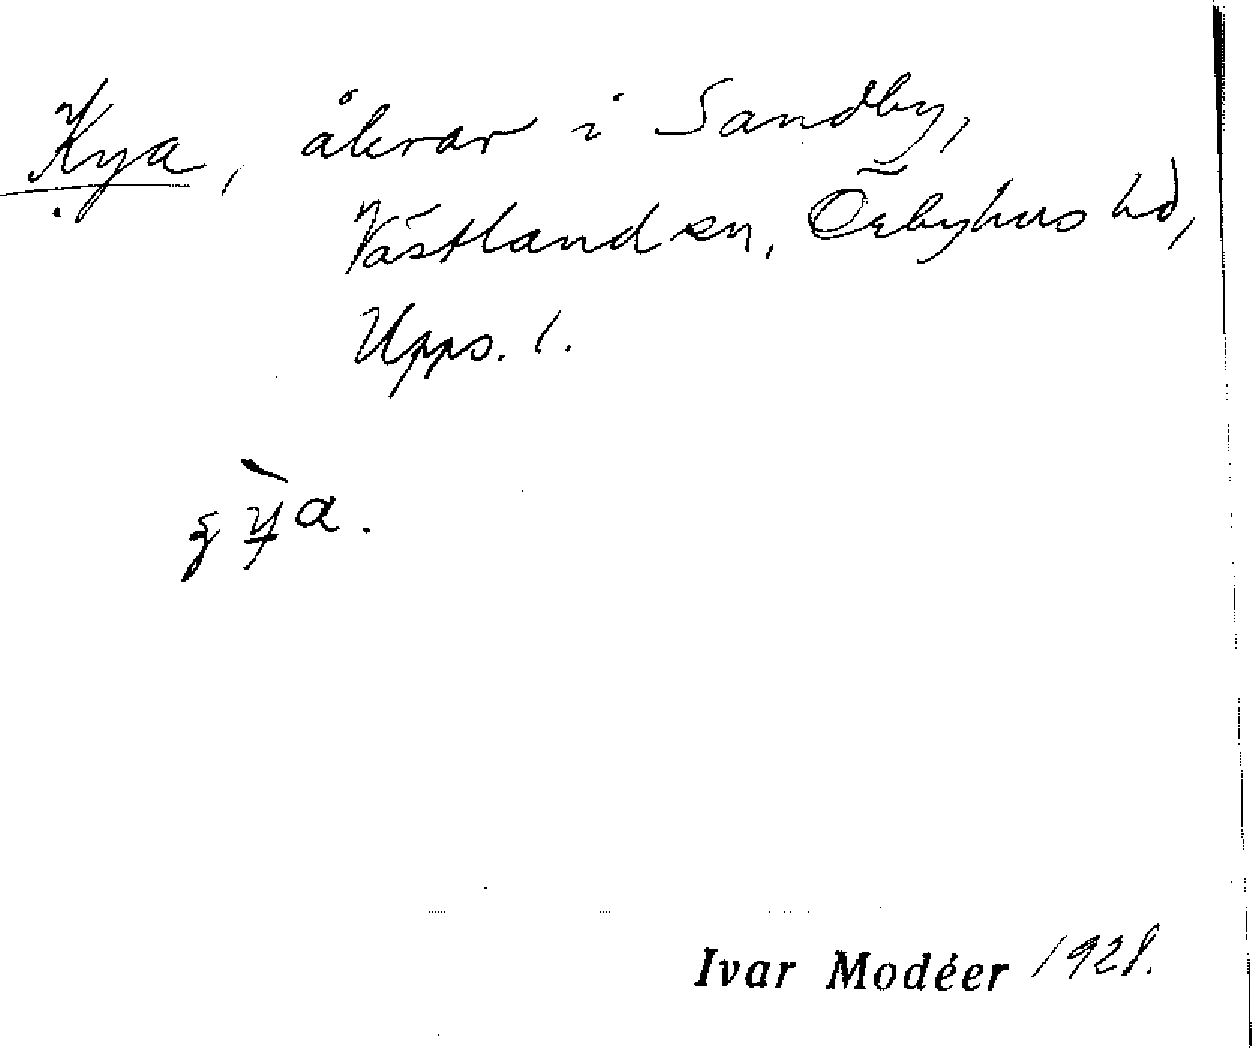 Kya, åkrar i Sandby,
Västland sn, Örbyhus hd,
Upps. l.
Ivar Modéer 1928.